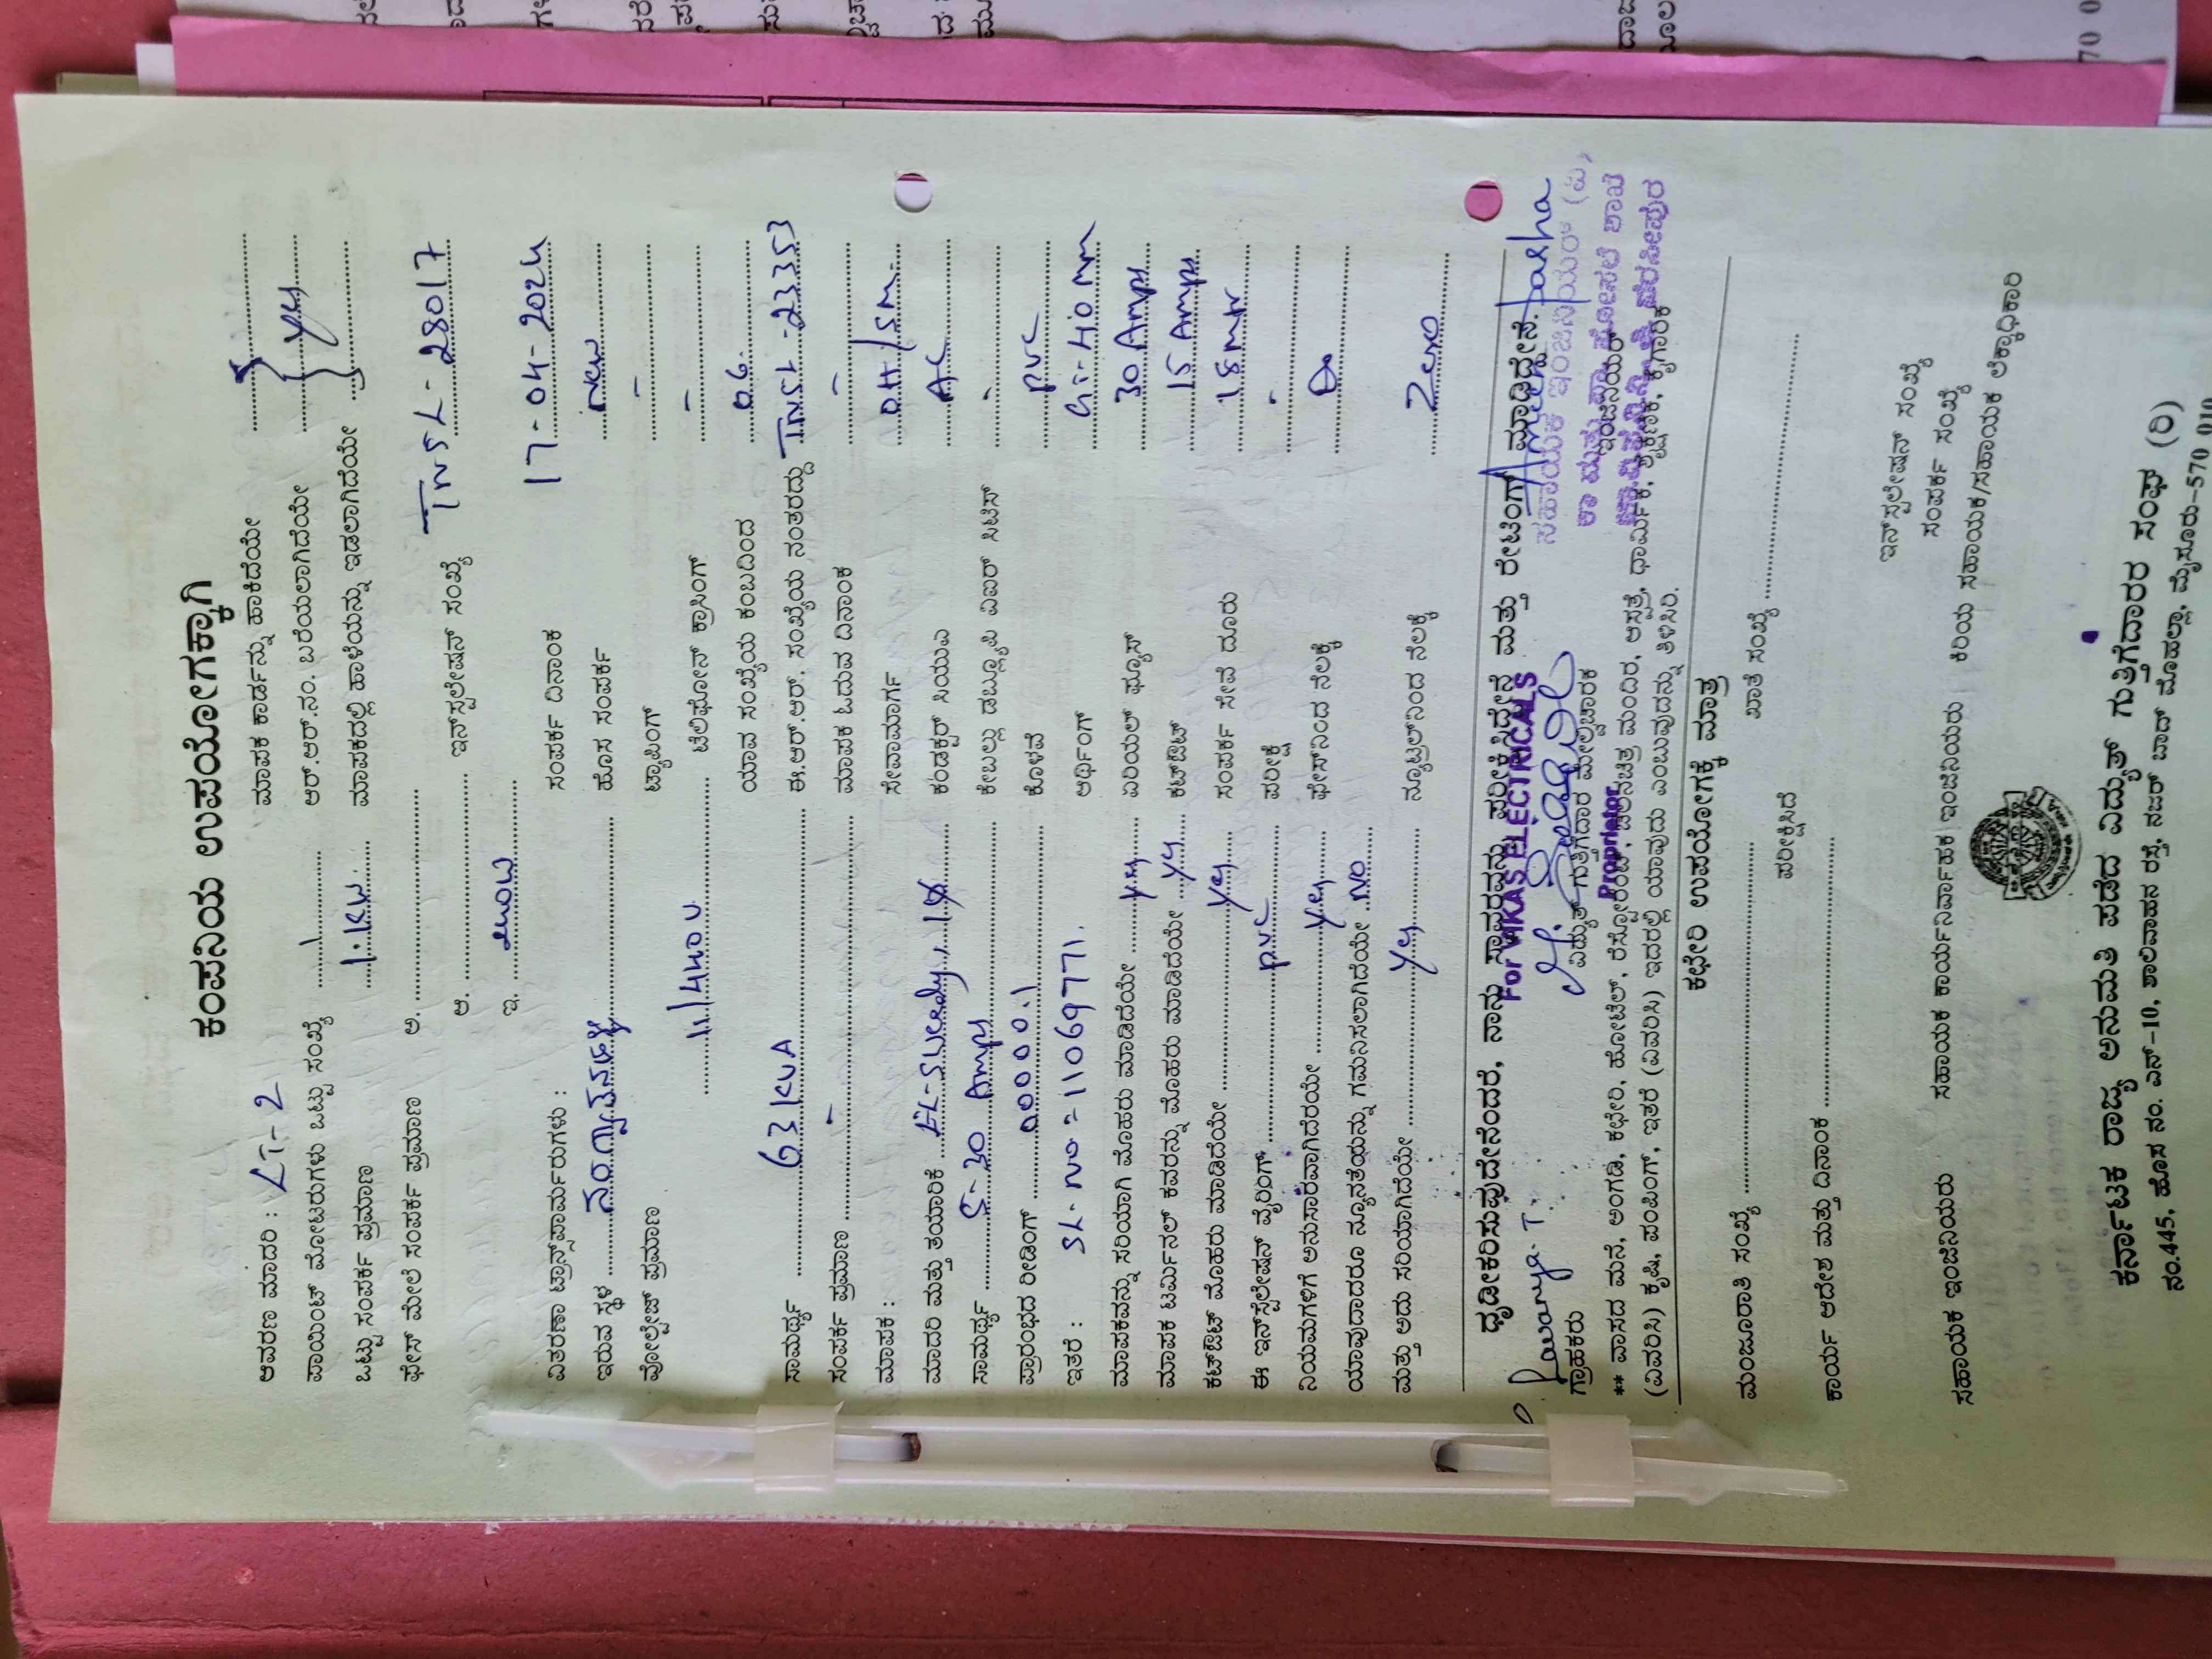 ಕಂಪನಿಯ ಉಪಯೋಗಕ್ಕಾಗಿ
ಆವರಣ ಮಾದರಿ : LT-2 ಮಾಪಕ ಕಾರ್ಡನ್ನು ಹಾಕಿದೆಯೇ
ಪಾಯಿಂಟ್ ಮೋಟರುಗಳು ಒಟ್ಟು ಸಂಖ್ಯೆ 1 ಆರ್.ಆರ್.ನಂ. ಬರೆಯಲಾಗಿದೆಯೇ yes
ಒಟ್ಟು ಸಂಪರ್ಕ ಪ್ರಮಾಣ 1.KW. ಮಾಪಕದಲ್ಲಿ ಹಾಳೆಯನ್ನು ಇಡಲಾಗಿದೆಯೇ
ಫೇಸ್ ಮೇಲೆ ಸಂಪರ್ಕ ಪ್ರಮಾಣ ಅ.
ಆ. ಇನ್‌ಸ್ಟಲೇಷನ್ ಸಂಖ್ಯೆ TNSL-28017
ಇ.
ವಿತರಣಾ ಟ್ರಾನ್ಸ್‌ಫಾರ್ಮರುಗಳು : ಸಂಪರ್ಕ ದಿನಾಂಕ 17-04-2024
ಇರುವ ಸ್ಥಳ ಹೊಸ ಸಂಪರ್ಕ New
ವೋಲ್ಟೇಜ್ ಪ್ರಮಾಣ ಟ್ಯಾಪಿಂಗ್ -
11/440V ಟೆಲಿಫೋನ್ ಕ್ರಾಸಿಂಗ್ -
ಯಾವ ಸಂಖ್ಯೆಯ ಕಂಬದಿಂದ 06.
ಸಾಮರ್ಥ್ಯ 63 KVA ಈ.ಆರ್.ಆರ್. ಸಂಖ್ಯೆಯ ನಂತರದ್ದು TNSL-23353
ಸಂಪರ್ಕ ಪ್ರಮಾಣ - ಮಾಪಕ ಓದುವ ದಿನಾಂಕ -
ಮಾಪಕ : ಸೇವಾಮಾರ್ಗ OH/SM.
ಮಾದರಿ ಮತ್ತು ತಯಾರಿಕೆ 1Ø ಕಂಡಕ್ಟರ್ ಸಿಯುಎ AC
ಸಾಮರ್ಥ್ಯ 5-30 Amps ಕೇಬಲ್ಲು ಡಬ್ಲ್ಯೂಪಿ ವಿಐಆರ್ ಸಿಟಿಸ್ -
ಪ್ರಾರಂಭದ ರೀಡಿಂಗ್ 00000.1 ಕೊಳವೆ PVC
ಇತರೆ : SL-NO=11069771. ಅರ್ಥಿಂಗ್ GI-40mm
ಮಾಪಕವನ್ನು ಸರಿಯಾಗಿ ಮೊಹರು ಮಾಡಿದೆಯೇ yes ಏರಿಯಲ್ ಫ್ಯೂಸ್ 30 Amps
ಮಾಪಕ ಟರ್ಮಿನಲ್ ಕವರನ್ನು ಮೊಹರು ಮಾಡಿದೆಯೇ yes ಕಟ್‌ಔಟ್ 15 Amps
ಕಟ್‌ಔಟ್ ಮೊಹರು ಮಾಡಿದೆಯೇ yes ಸಂಪರ್ಕ ಸೇವೆ ದೂರು 18mtr
ಈ ಇನ್‌ಸ್ಟಲೇಷನ್ ವೈರಿಂಗ್ PVC ಪರೀಕ್ಷೆ -
ನಿಯಮಗಳಿಗೆ ಅನುಸಾರವಾಗಿದೆಯೇ yes ಫೇಸ್‌ನಿಂದ ನೆಲಕ್ಕೆ
ಯಾವುದಾದರೂ ನ್ಯೂನತೆಯನ್ನು ಗಮನಿಸಲಾಗಿದೆಯೇ NO
ಮತ್ತು ಅದು ಸರಿಯಾಗಿದೆಯೇ yes ನ್ಯೂಟ್ರಲ್‌ನಿಂದ ನೆಲಕ್ಕೆ Zero
ದೃಢೀಕರಿಸುವುದೇನೆಂದರೆ, ನಾನು ಸ್ಥಾವರವನ್ನು ಪರೀಕ್ಷಿಸಿದ್ದೇನೆ ಮತ್ತು ರೇಟಿಂಗ್ ಮಾಡಿದ್ದೇನೆ.
Lavanya.T. For VIKAS ELECTRICALS Ameer pasha
ಗ್ರಾಹಕರು ವಿದ್ಯುತ್ ಗುತ್ತಿಗೆದಾರ ಮೇಲ್ವಿಚಾರಕ ಇಂಜಿನಿಯರ್
Proprietor
ಸಹಾಯಕ ಇಂಜಿನಿಯರ್ (ವಿ)
** ವಾಸದ ಮನೆ, ಅಂಗಡಿ, ಕಛೇರಿ, ಹೋಟೆಲ್, ರೆಸ್ಟೋರೆಂಟ್, ಚಲನಚಿತ್ರ ಮಂದಿರ, ಆಸ್ಪತ್ರೆ, ಧಾರ್ಮಿಕ, ಶೈಕ್ಷಣಿಕ, ಕೈಗಾರಿಕೆ
(ವಿವರಿಸಿ) ಕೃಷಿ, ಪಂಪಿಂಗ್, ಇತರೆ (ವಿವರಿಸಿ) ಇದರಲ್ಲಿ ಯಾವುದು ಎಂಬುವುದನ್ನು ತಿಳಿಸಿರಿ.
ಕಛೇರಿ ಉಪಯೋಗಕ್ಕೆ ಮಾತ್ರ
ಮಂಜೂರಾತಿ ಸಂಖ್ಯೆ ಖಾತೆ ಸಂಖ್ಯೆ
ಪರೀಕ್ಷಿಸಿದೆ
ಕಾರ್ಯ ಆದೇಶ ಮತ್ತು ದಿನಾಂಕ
ಇನ್‌ಸ್ಟಲೇಷನ್ ಸಂಖ್ಯೆ
ಸಂಪರ್ಕ ಸಂಖ್ಯೆ
ಸಹಾಯಕ ಇಂಜಿನಿಯರು ಸಹಾಯಕ ಕಾರ್ಯನಿರ್ವಾಹಕ ಇಂಜಿನಿಯರು ಕಿರಿಯ ಸಹಾಯಕ/ಸಹಾಯಕ ಲೆಕ್ಕಾಧಿಕಾರಿ
ಕರ್ನಾಟಕ ರಾಜ್ಯ ಅನುಮತಿ ಪಡೆದ ವಿದ್ಯುತ್ ಗುತ್ತಿಗೆದಾರರ ಸಂಘ (ರಿ)
ನಂ.445, ಹೊಸ ನಂ. ಎನ್-10, ಶಾಲಿವಾಹನ ರಸ್ತೆ, ನಜರ್ ಬಾದ್ ಮೊಹಲ್ಲಾ, ಮೈಸೂರು-570 010